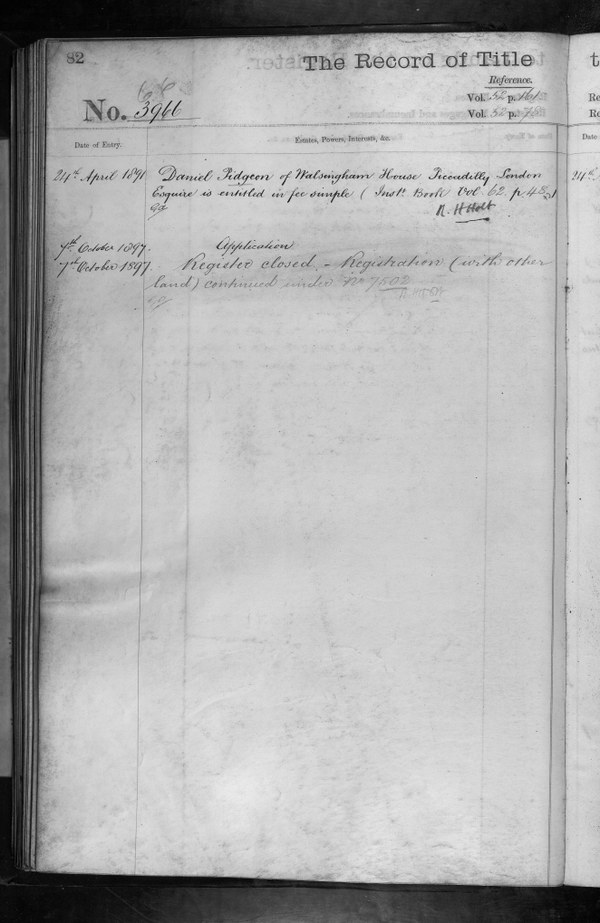 82
The Record of Title
Reference.
No. 3966
Vol. 52 p. 161
Vol. 52 p.
Date of Entry.
Estates, Powers, Interests, &c.
24th April 1891
Daniel Pidgeon of Walsingham House Piccadilly London
Esquire is entitled in fee simple ( Inst. Book Vol 62 p 48
R. H Holt
7th October 1897.
Application
7th October 1897.
Register closed - Registration (with other
land) continued under No 7502
t
Re
Re
24th